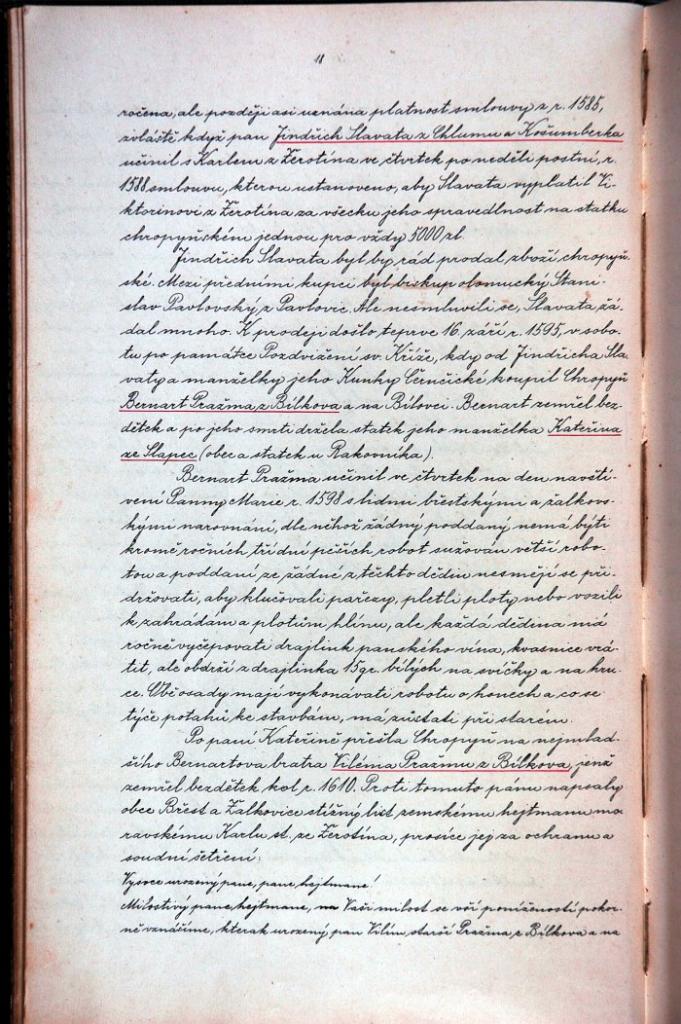 11
ročena, ale později asi uznána platnost smlouvy z r. 1585,
zvláště když pan Jindřich Slavata z Chlumu a Košumberka
učinil s Karlem z Žerotína ve čtvrtek po neděli postní, r.
1588 smlouvu, kterou ustanoveno, aby Slavata vyplatil Vi-
ktorinovi z Žerotína za všecku jeho spravedlnost na statku
chropyňském jednou pro vždy 5000 zl.
Jindřich Slavata byl by rád prodal zboží chropyň-
ské. Mezi předními kupci byl biskup olomucký Stani-
slav Pavlovský z Pavlovic. Ale nesmluvili se, Slavata žá-
dal mnoho. K prodeji došlo teprve 16. září r. 1595, v sobo-
tu po památce Pozdvižení sv. Kříže, kdy od Jindřicha Sla-
vaty a manželky jeho Kunky Černčické koupil Chropyň
Bernart Pražma z Bílkova a na Bílovci. Bernart zemřel bez-
dětek a po jeho smrti držela statek jeho manželka Kateřina
ze Slapec (obec a statek u Rakovníka).
Bernart Pražma učinil ve čtvrtek na den navští-
vení Panny Marie r. 1598 s lidmi břestskými a žalkov-
skými narovnání, dle něhož žádný poddaný nemá býti
kromě ročních tří dní pěších robot sužován větší robo-
tou a poddaní ze žádné z těchto dědin nesmějí se při-
držovati, aby klučovali pařezy, pletli ploty nebo vozili
k zahrádám a plotům hlínu, ale každá dědina má
ročně vyčepovati drajlink panského vína, kvasnice vrá-
tit, ale obdrží z drajlinka 15 gr. bílých na svíčky a na hrn-
ce. Obě osady mají vykonávati robotu o honech a co se
týče potahů ke stavbám, má zůstati při starém.
Po paní Kateřině přešla Chropyň na nejmlad-
šího Bernartova bratra Viléma Pražmu z Bílkova, jenž
zemřel bezdětek kol r. 1610. Proti tomuto pánu napsaly
obce Břest a Žalkovice stížný list zemskému hejtmanu mo-
ravskému Karlu st. ze Žerotína, prosíce jej za ochranu a
soudní šetření:
Vysoce urozený pane, pane hejtmane!
Milostivý pane hejtmane, na Vaši milost se vší poníženností pokor-
ně vznášíme, kterak urozený pan Vilím starší Pražma z Bílkova a na